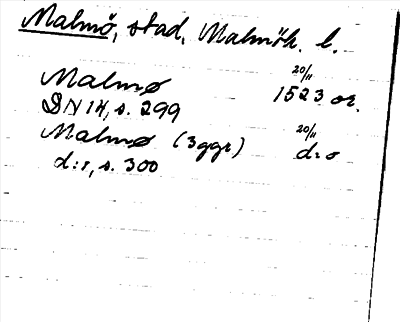 Malmö, stad, Malmöh. l.
Malmø 20/11 1523 or.
DN 14, s. 299
Malmø (3ggr) 20/11 d:o
d:r, s. 300